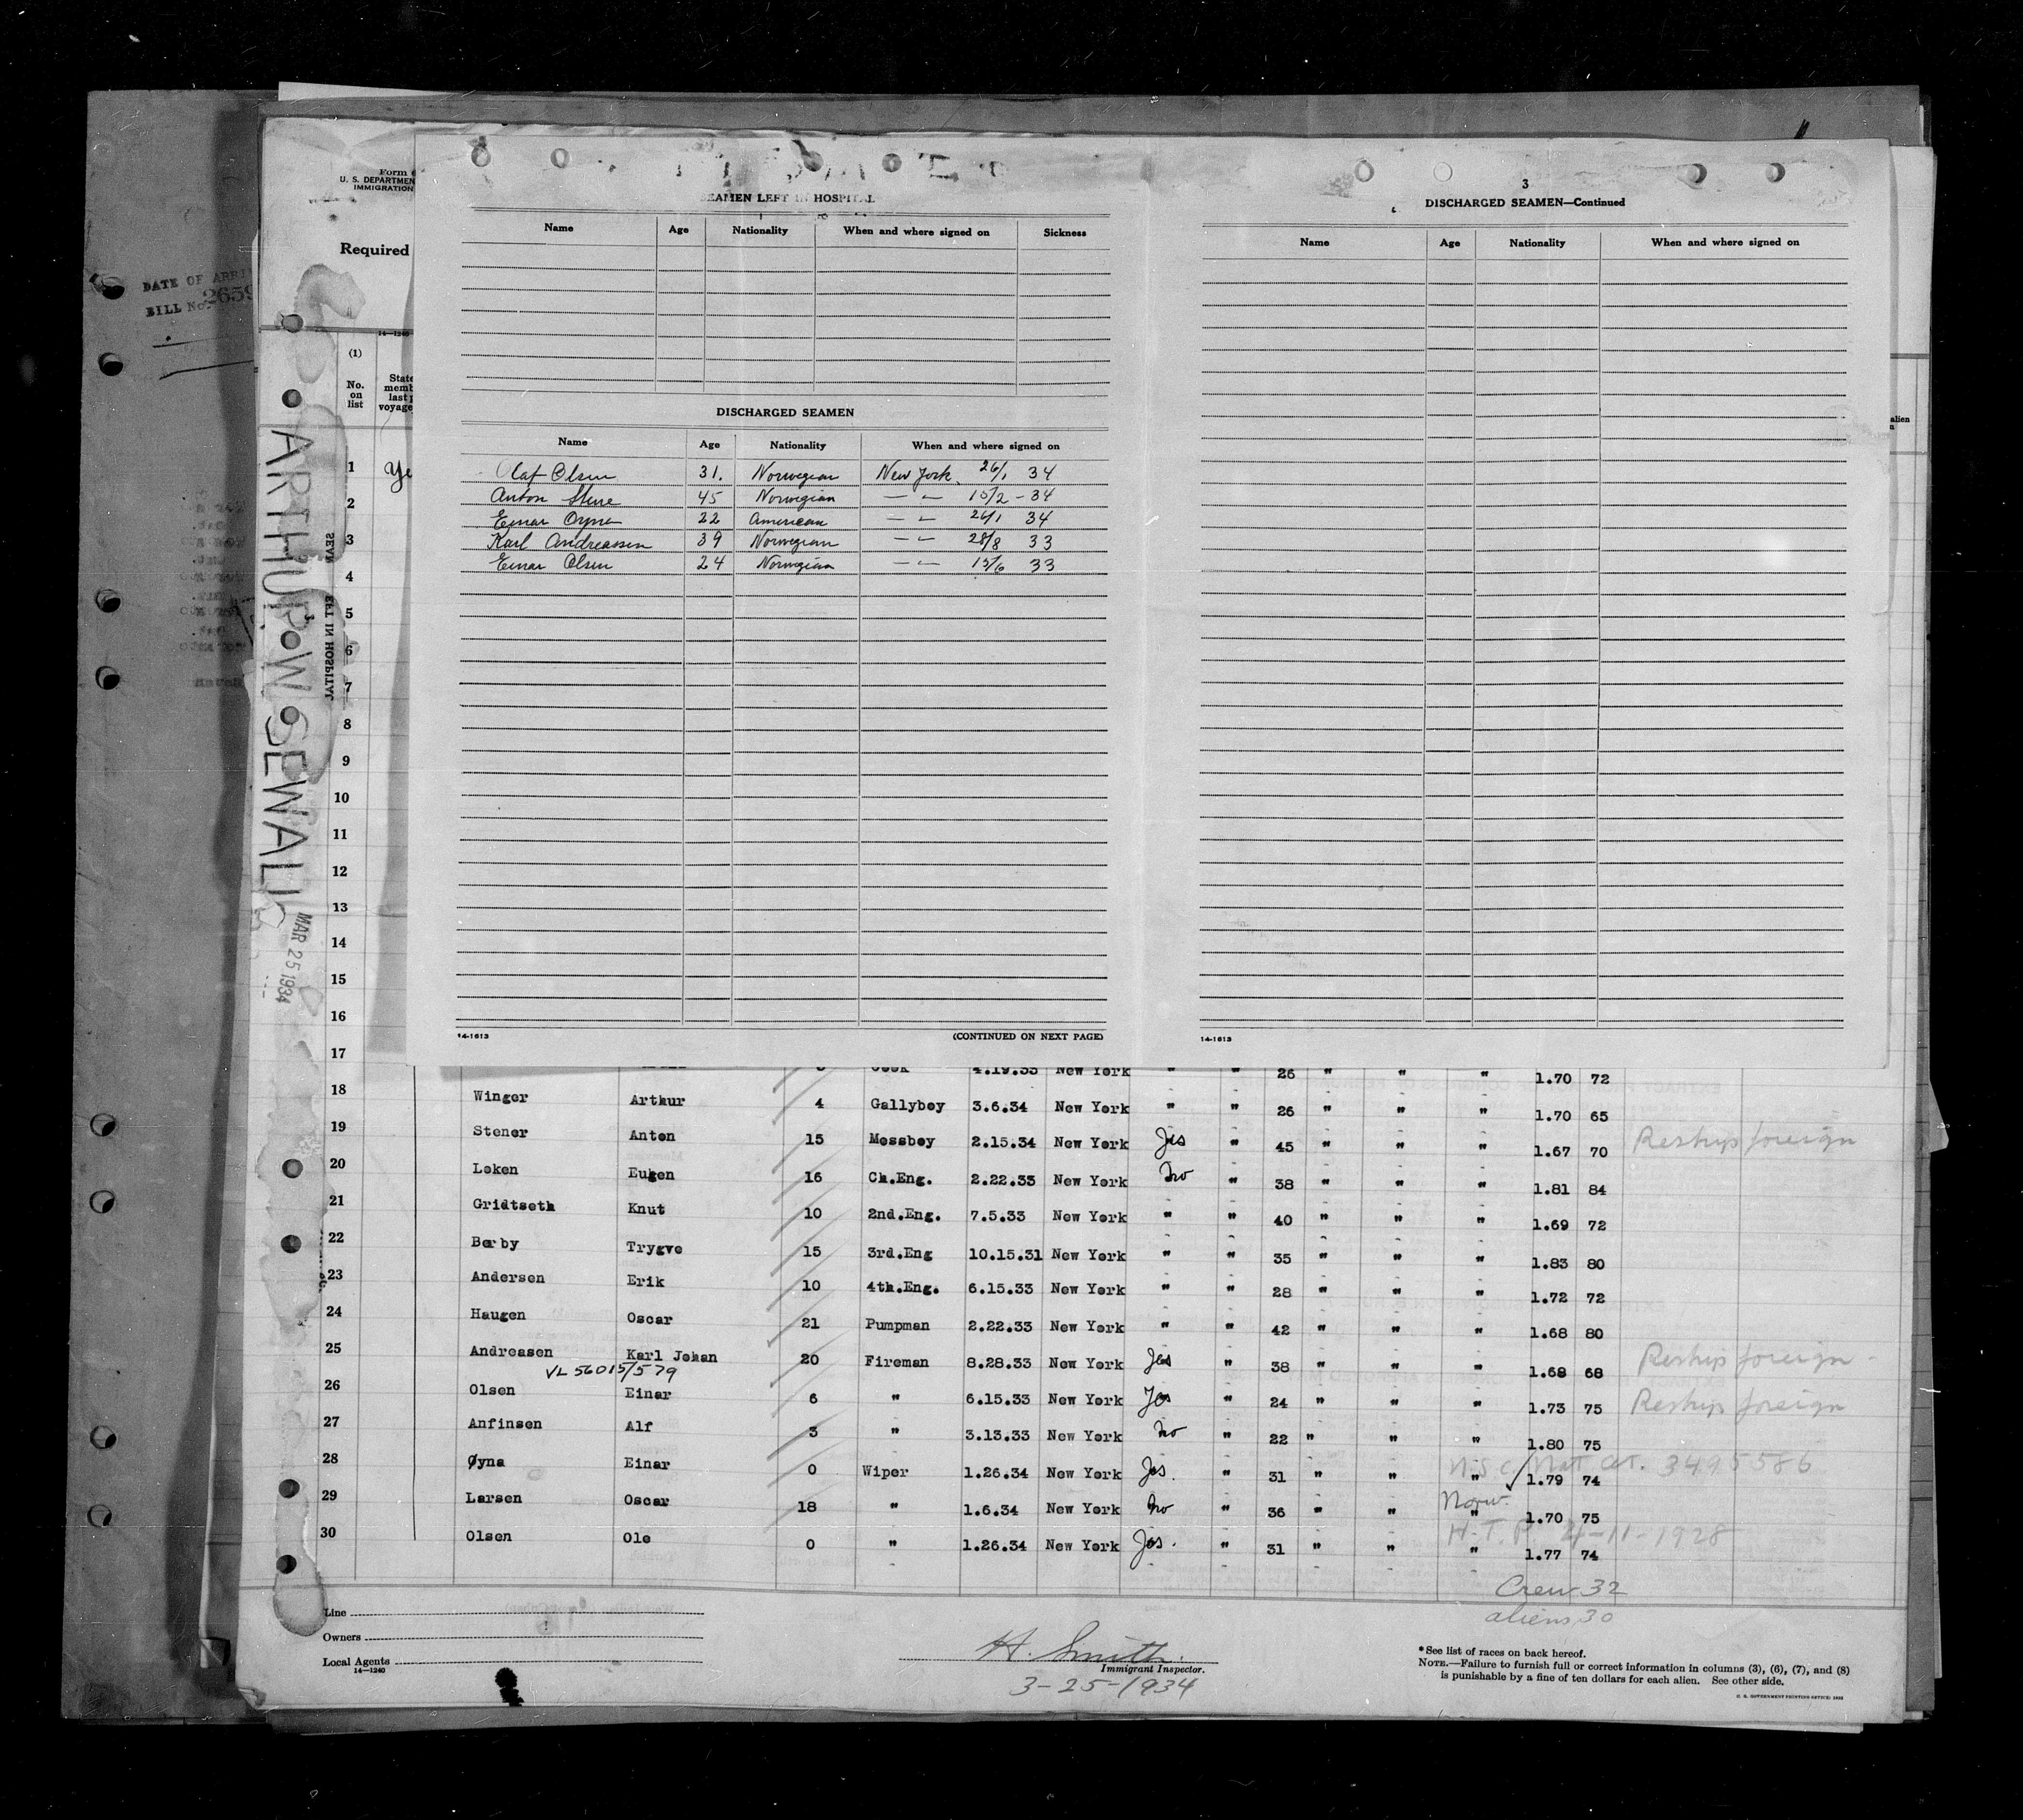 Form
U. S. DEPARTMEN
IMMIGRATION
Required
DATE OF ARRI
BILL No. 2659
14—1240
(1)
No. on list
State
memb
last p
voyage
ARTHUR W SEWALL
MAR 25 1934
SEAMEN LEFT IN HOSPITAL
Name Age Nationality When and where signed on Sickness
DISCHARGED SEAMEN
Name Age Nationality When and where signed on
Olaf Olsen 31. Norwegian New York 26/1 34
Anton Stene 45 Norwegian — " — 15/2 - 34
Einar Oyna 22 American — " — 26/1 34
Karl Andreassen 39 Norwegian — " — 28/8 33
Einar Olsen 24 Norwegian — " — 15/6 33
14-1613
(CONTINUED ON NEXT PAGE)
3
DISCHARGED SEAMEN—Continued
Name Age Nationality When and where signed on
14-1613
alien
1 Ye
2
3
4
5
6
7
8
9
10
11
12
13
14
15
16
17 Cook 4.19.33 New York " " 26 " " " 1.70 72
18 Winger Arthur 4 Gallyboy 3.6.34 New York " " 26 " " " 1.70 65
19 Stener Anton 15 Messboy 2.15.34 New York Yes " 45 " " " 1.67 70 Reship foreign
20 Løken Eugen 16 Ch.Eng. 2.22.33 New York No " 38 " " " 1.81 84
21 Gridtseth Knut 10 2nd.Eng. 7.5.33 New York " " 40 " " " 1.69 72
22 Børby Trygve 15 3rd.Eng 10.15.31 New York " " 35 " " " 1.83 80
23 Andersen Erik 10 4th.Eng. 6.15.33 New York " " 28 " " " 1.72 72
24 Haugen Oscar 21 Pumpman 2.22.33 New York " " 42 " " " 1.68 80
25 Andreasen Karl Johan 20 Fireman 8.28.33 New York Yes " 38 " " " 1.68 68 Reship foreign
VL 56015/579
26 Olsen Einar 6 " 6.15.33 New York Yes " 24 " " " 1.73 75 Reship foreign
27 Anfinsen Alf 3 " 3.13.33 New York No " 22 " " " 1.80 75
28 Øyna Einar 0 Wiper 1.26.34 New York Yes. " 31 " " " 1.79 74 U.S.C. Nat. Cet. 3495586
29 Larsen Oscar 18 " 1.6.34 New York No " 36 " " Norw. " 1.70 75
30 Olsen Ole 0 " 1.26.34 New York Yes. " 31 " " " 1.77 74 H.T.P. 4-11-1928
Crew 32
aliens 30
Line
Owners
Local Agents
14—1240
H. Smith.
Immigrant Inspector.
3-25-1934
*See list of races on back hereof.
NOTE.—Failure to furnish full or correct information in columns (3), (6), (7), and (8)
is punishable by a fine of ten dollars for each alien. See other side.
U. S. GOVERNMENT PRINTING OFFICE: 1933